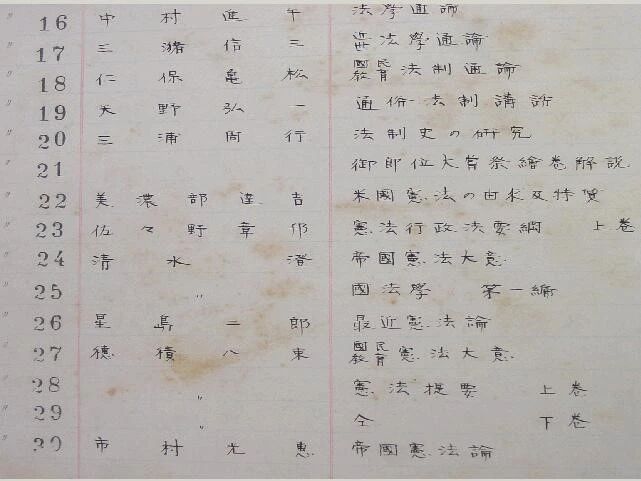 〃 16 中村進午 法學通論
〃 17 三潴信三 近世法學通論
〃 18 仁保亀松 國民教育法制通論
〃 19 天野弘一 通俗法制講話
〃 20 三浦周行 法制史の研究
〃 21 御即位大嘗祭繪巻解説
〃 22 美濃部達吉 米國憲法の由来及特質
〃 23 佐々野章邦 憲法行政法要綱 上巻
〃 24 清水澄 帝國憲法大意
〃 25 〃 國法學 第一編
〃 26 星島二郎 最近憲法論
〃 27 穂積八束 國民教育憲法大意
〃 28 〃 憲法提要 上巻
〃 29 〃 仝 下巻
〃 30 市村光惠 帝國憲法論